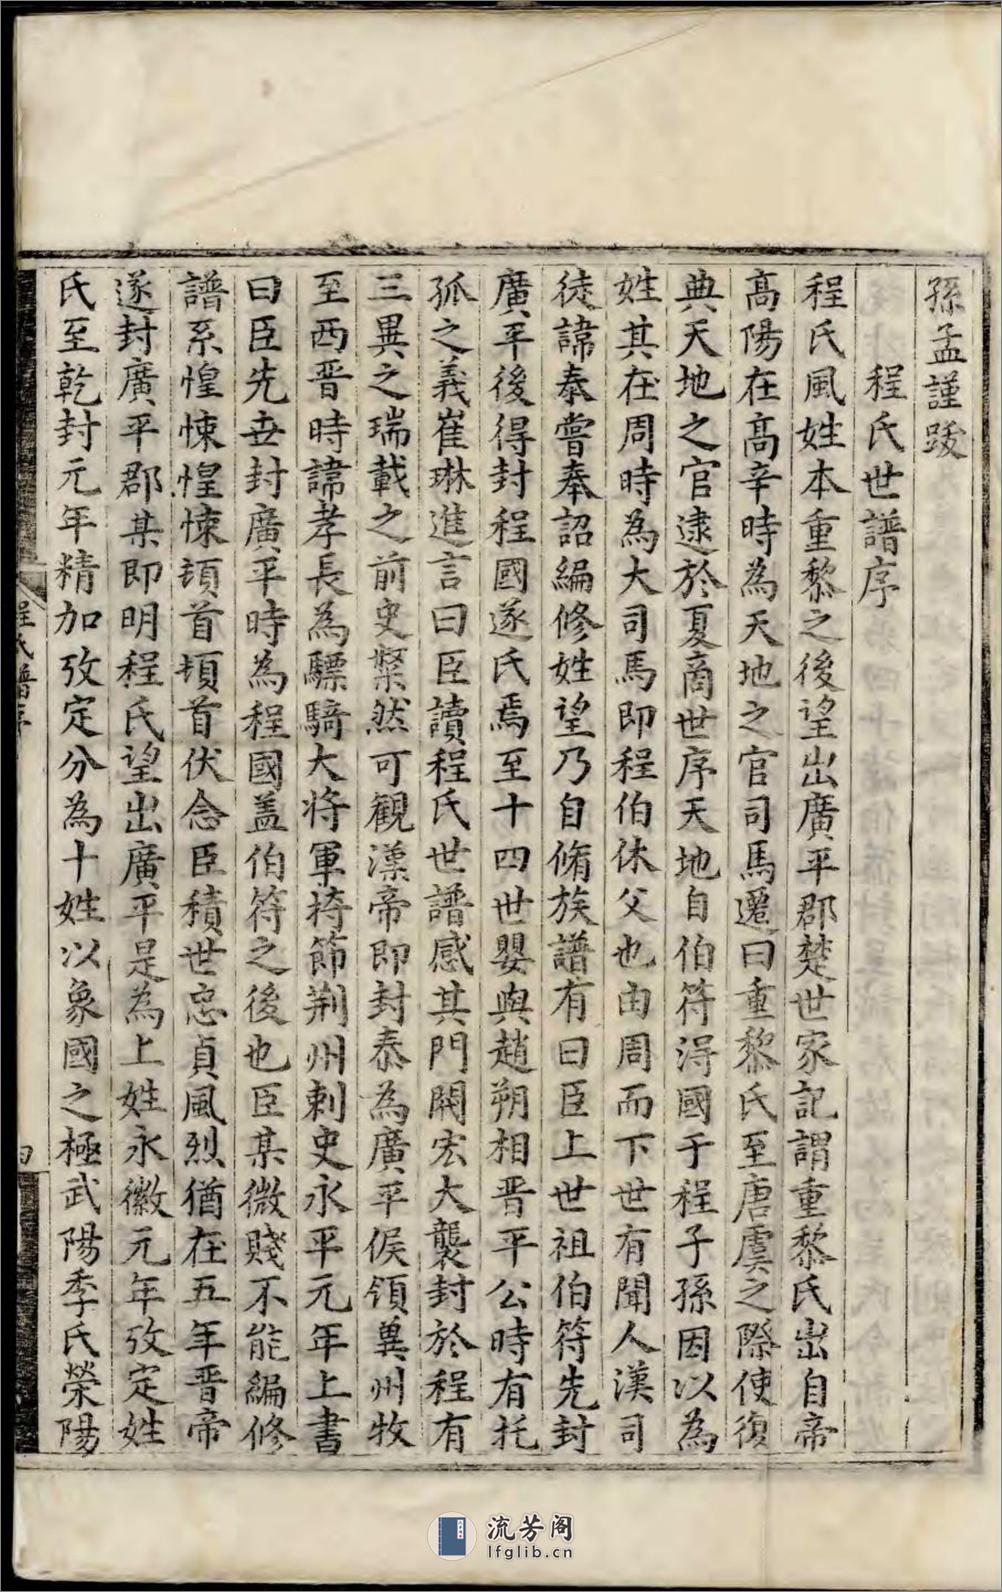 孫孟謹跋
程氏世譜序
程氏風姓本重黎之後望出廣平郡楚世家記謂重黎氏出自帝
高陽在高辛時為天地之官司馬遷曰重黎氏至唐虞之際使復
典天地之官逮於夏商世序天地自伯符得國于程子孫因以為
姓其在周時為大司馬即程伯休父也由周而下世有聞人漢司
徒諱泰嘗奉詔編修姓望乃自脩族譜有曰臣上世祖伯符先封
廣平後得封程國遂氏焉至十四世嬰與趙朔相晋平公時有托
孤之義崔琳進言曰臣讀程氏世譜感其門閥宏大襲封於程有
三異之瑞載之前史粲然可觀漢帝即封泰為廣平侯領冀州牧
至西晋時諱孝長為驃騎大将軍持節荆州刺史永平元年上書
曰臣先世封廣平時為程國盖伯符之後也臣某微賤不能編修
譜系惶悚惶悚頓首頓首伏念臣積世忠貞風烈猶在五年晋帝
遂封廣平郡某即明程氏望出廣平是為上姓永徽元年攷定姓
氏至乾封元年精加攷定分為十姓以象國之極武陽季氏榮陽
程氏譜序
四
流芳阁
lfglib.cn